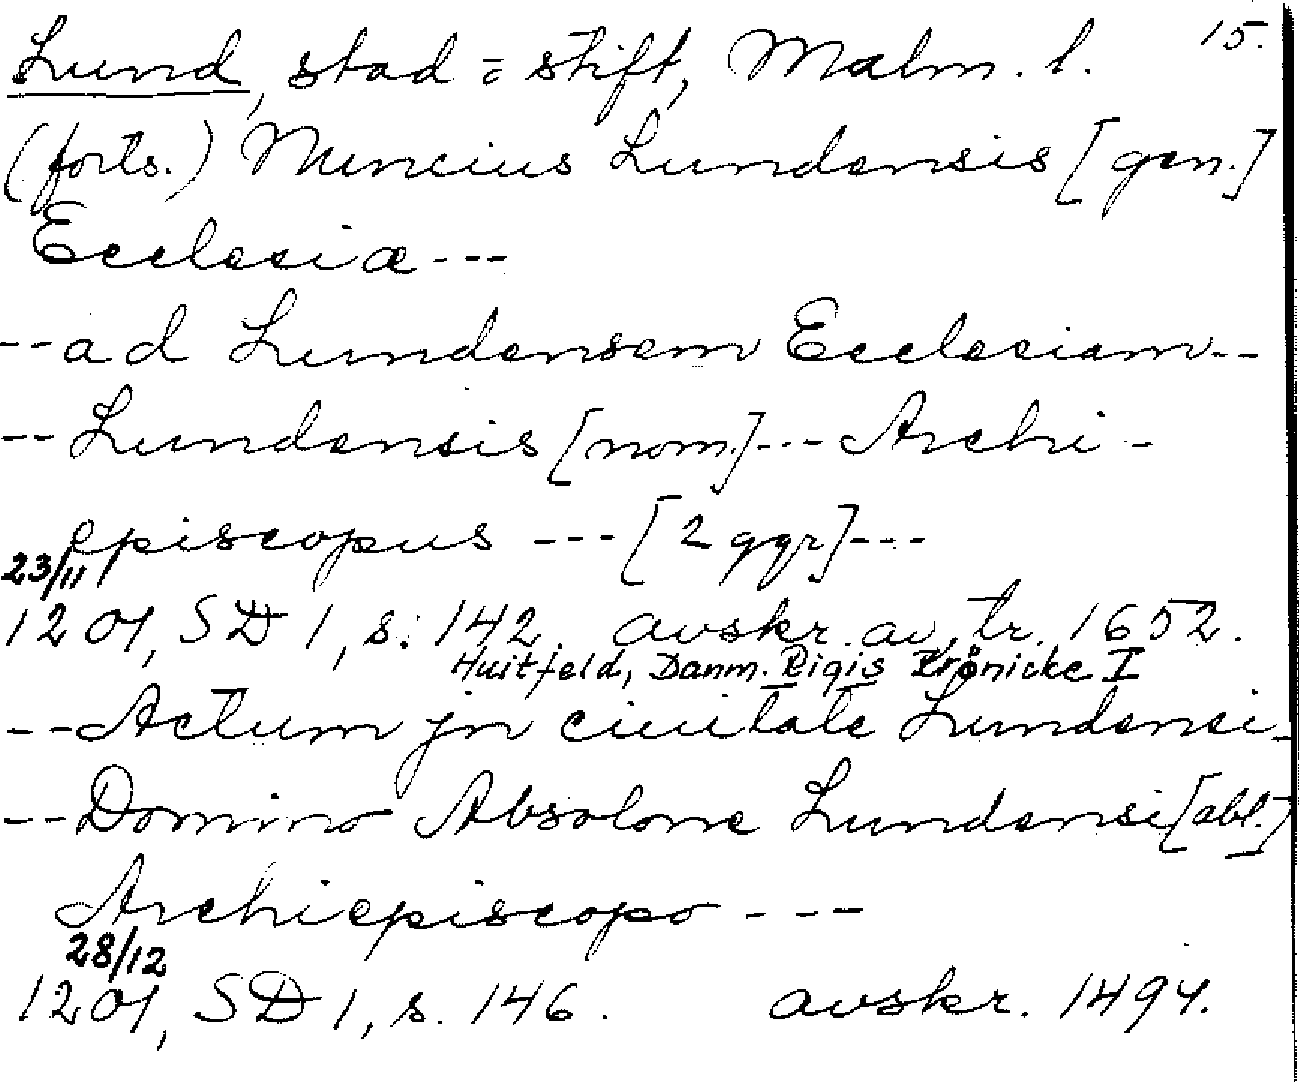 15.
Lund, stad = stift, Malm. l.
(forts.) Nuncius Lundensis [gen.]
Ecclesiæ ---
-- ad Lundensem Ecclesiam --
-- Lundensis [nom.] --- Archi -
episcopus --- [2 ggr] ---
23/11
1201, SD 1, s. 142. avskr. av tr. 1652.
Huitfeld, Danm. Rigis Krønicke I
-- Actum jn ciuitate Lundensi -
-- Domino Absolone Lundensi [abl.]
Archiepiscopo ---
28/12
1201, SD 1, s. 146. avskr. 1494.